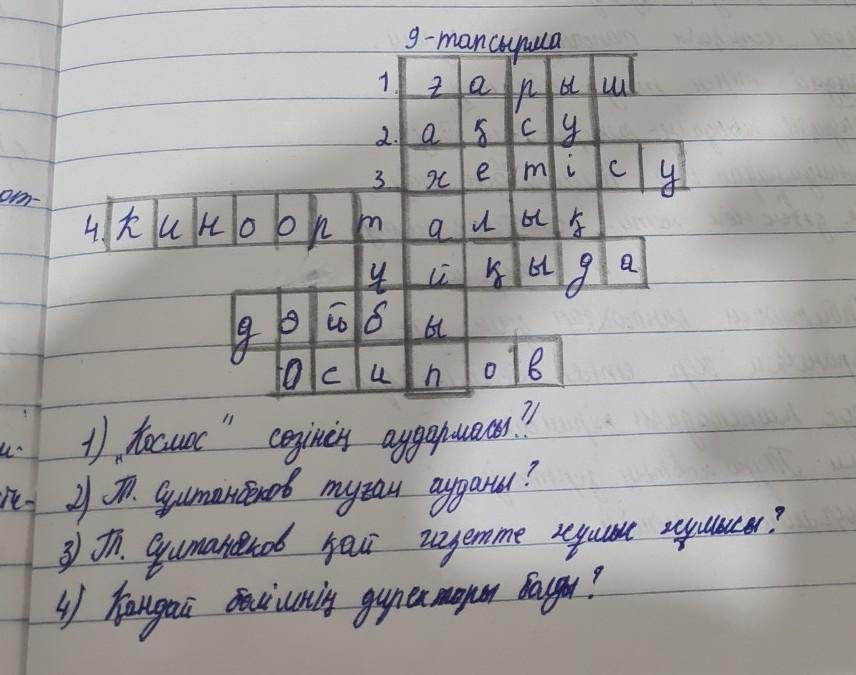 9-тапсырма
1. ғарыш
2. ақсу
3. жетісу
4. киноорталық
ұйқыда
дойбы
Осипов
1) „Космос" сөзінің аудармасы?
2) Т. Сұлтанбеков туған ауданы?
3) Т. Сұлтанбеков қай газетте жұмыс жұмысы?
4) Қандай бөлімнің директоры болды?